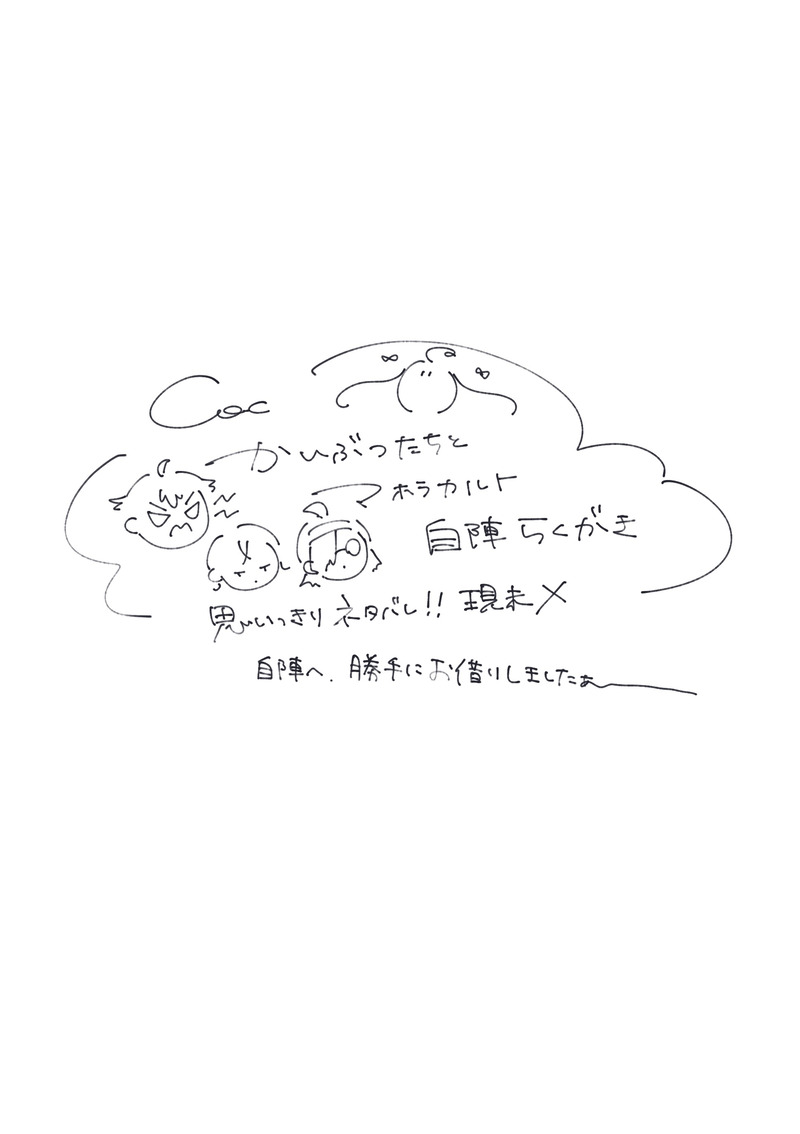 CoC
かいぶつたちと
ホラカルト
自陣らくがき
思いっきりネタバレ!! 現未×
自陣へ、勝手にお借りしましたぁ